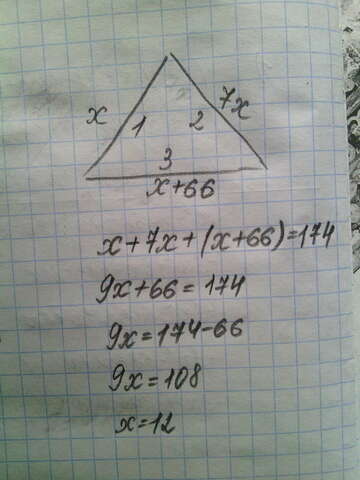 x 7x
1 2
3
x+66
x+7x+(x+66)=174
9x+66=174
9x=174-66
9x=108
x=12